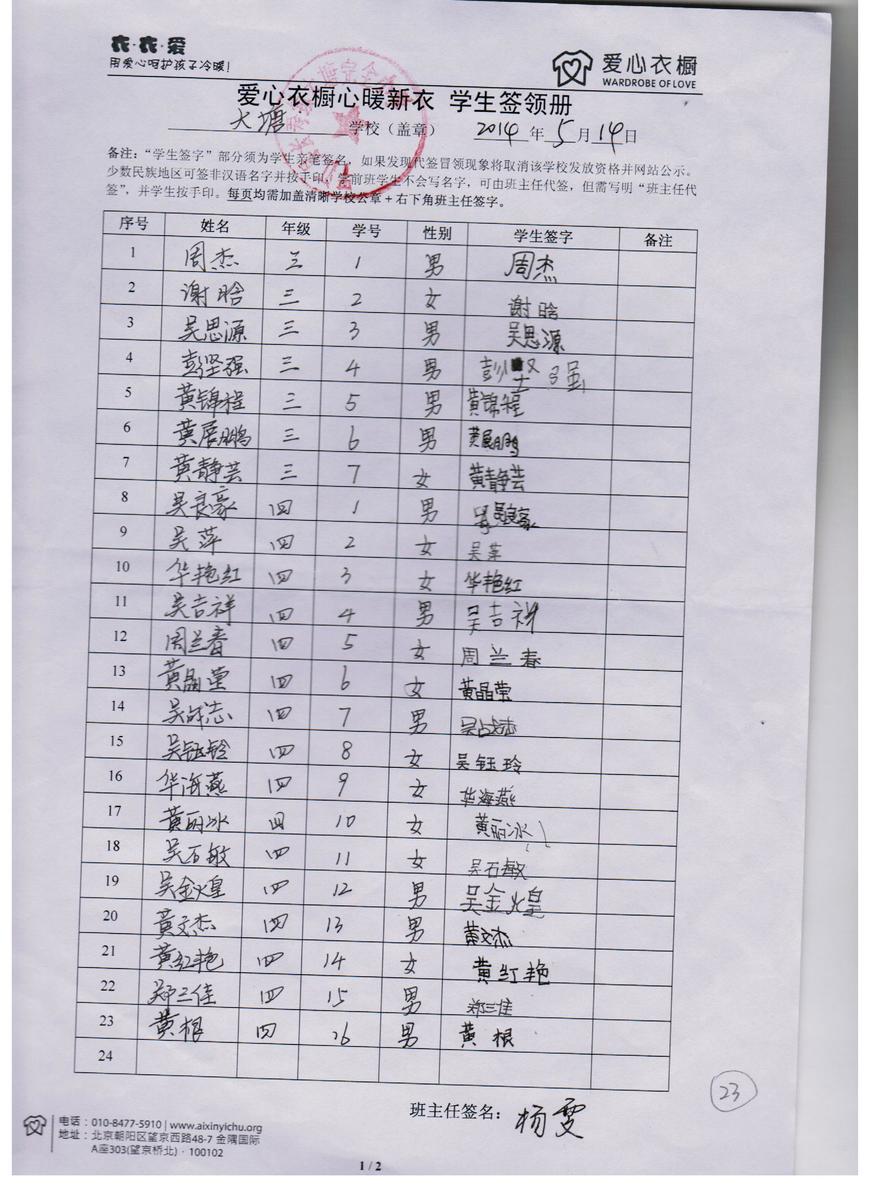 衣·衣·爱
用爱心呵护孩子冷暖!
爱心衣橱
WARDROBE OF LOVE
爱心衣橱心暖新衣 学生签领册
大塘 学校（盖章） 2014 年 5 月 14 日
备注：“学生签字”部分须为学生亲笔签名，如果发现代签冒领现象将取消该学校发放资格并网站公示。
少数民族地区可签非汉语名字并按手印，学前班学生不会写名字，可由班主任代签，但需写明“班主任代
签”，并学生按手印。每页均需加盖清晰学校公章+右下角班主任签字。
序号 姓名 年级 学号 性别 学生签字 备注
1 周杰 三 1 男 周杰
2 谢晗 三 2 女 谢晗
3 吴思源 三 3 男 吴思源
4 彭坚强 三 4 男 彭坚强
5 黄锦程 三 5 男 黄锦程
6 黄展鹏 三 6 男 黄展鹏
7 黄静芸 三 7 女 黄静芸
8 吴良豪 四 1 男 吴良豪
9 吴萍 四 2 女 吴萍
10 华艳红 四 3 女 华艳红
11 吴吉祥 四 4 男 吴吉祥
12 周兰春 四 5 女 周兰春
13 黄晶莹 四 6 女 黄晶莹
14 四 7 男
15 吴钰铃 四 8 女 吴钰玲
16 华海燕 四 9 女 华海燕
17 黄丽冰 四 10 女 黄丽冰
18 吴石敏 四 11 女 吴石敏
19 吴金煌 四 12 男 吴金煌
20 黄文杰 四 13 男 黄文杰
21 黄红艳 四 14 女 黄红艳
22 郑三佳 四 15 男 郑三佳
23 黄根 四 16 男 黄根
24
23
班主任签名：杨雯
电话：010-8477-5910 | www.aixinyichu.org
地址：北京朝阳区望京西路48-7 金隅国际
A座303(望京桥北)·100102
1 / 2